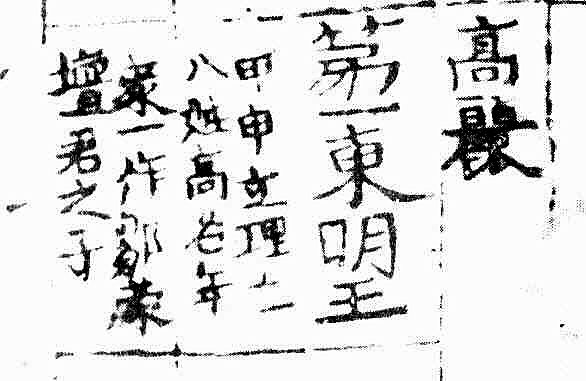 高麗
第一東明王
甲申立理十
八姓高名朱
蒙一作鄒蒙
壇君之子